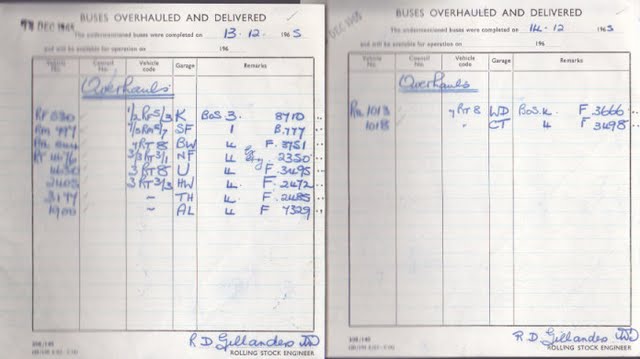 BUSES OVERHAULED AND DELIVERED
DEC 1965
The undermentioned buses were completed on 13.12. 1965
and will be available for operation on 196
Vehicle No. Council No. Vehicle code Garage Remarks
Overhauls
K BOS 3. 8710
SF 1 B.777
RT8 BW 4 F. 3751
NF 4 2350
3 RT8 U 4 F. 3495
3 RT3/3 HW 4 F. 2472
3177 – TH 4 F. 2485
1900 – AL 4 F 7329
R D Gillanders
ROLLING STOCK ENGINEER
BUSES OVERHAULED AND DELIVERED
The undermentioned buses were completed on 14.12 1965
and will be available for operation on 196
Vehicle No. Council No. Vehicle code Garage Remarks
Overhauls
1013 RT8 WD BOS.4 F.3666
1018 " CT 4 F 3498
R D Gillanders
ROLLING STOCK ENGINEER